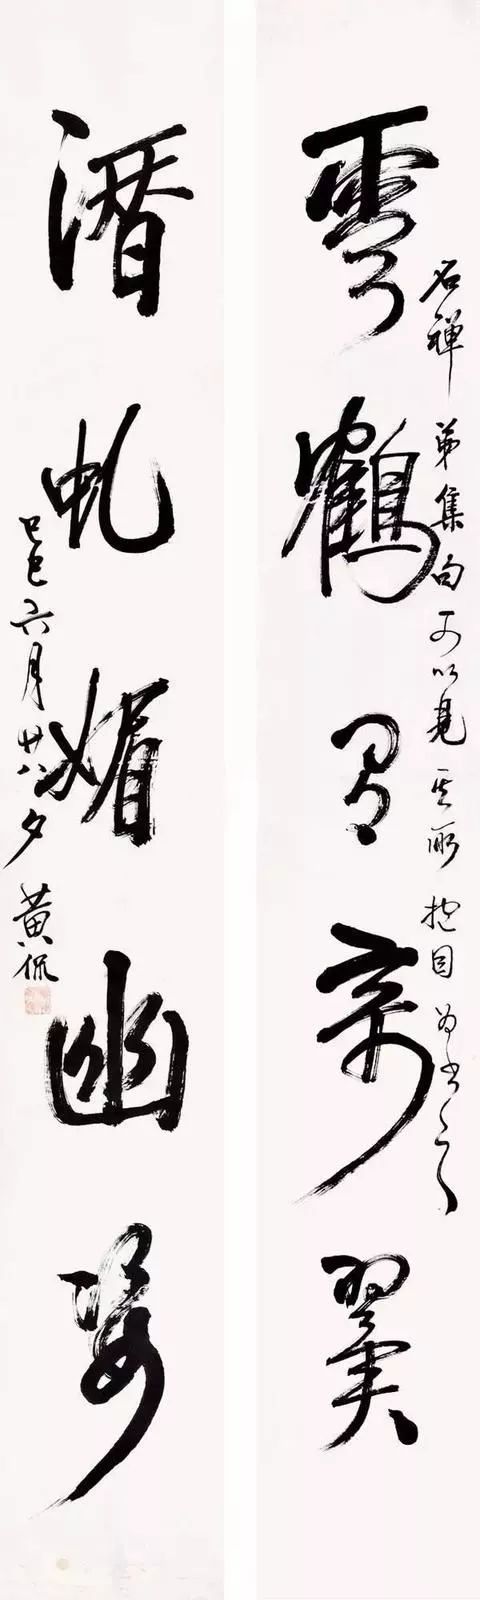 雲鶴有奇翼
石禪弟集句可以見其所抱因為書之
潛虬媚幽姿
己巳六月廿八夕 黃侃